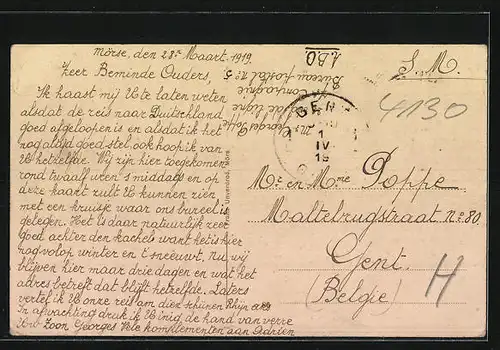 Mörse, den 28e Maart 1919
Zeer Beminde Ouders,
Ik haast mij U te laten weten
alsdat de reis naar Duitschland
goed afgeloopen is en alsdat ik het
nog altijd goed stel, ook hoop ik van
U hetzelfde. Wij zijn hier toegekomen
rond twaalf uren 's middags en op
deze kaart zult U kunnen zien
met een kruisje waar ons bureel is
gelegen. Het is daar natuurlijk zeer
goed achter den kachel want het is hier
nog volop winter en 't sneeuwt, nu wij
blijven hier maar drie dagen en wat het
adres betreft dat blijft hetzelfde. Laters
vertel ik U onze reis am dien schünen Rhijn
In afwachting druk ik U innig de hand van verre
Uw Zoon Georges Vele komplementen aan Adrien
A.B.O
Bureau postal n° 5
Georges Poppe
S.M.
4130
GENT
1
IV
19
Mr en Mme Poppe
Maltebrugstraat no 80
Gent
(Belgie)
H